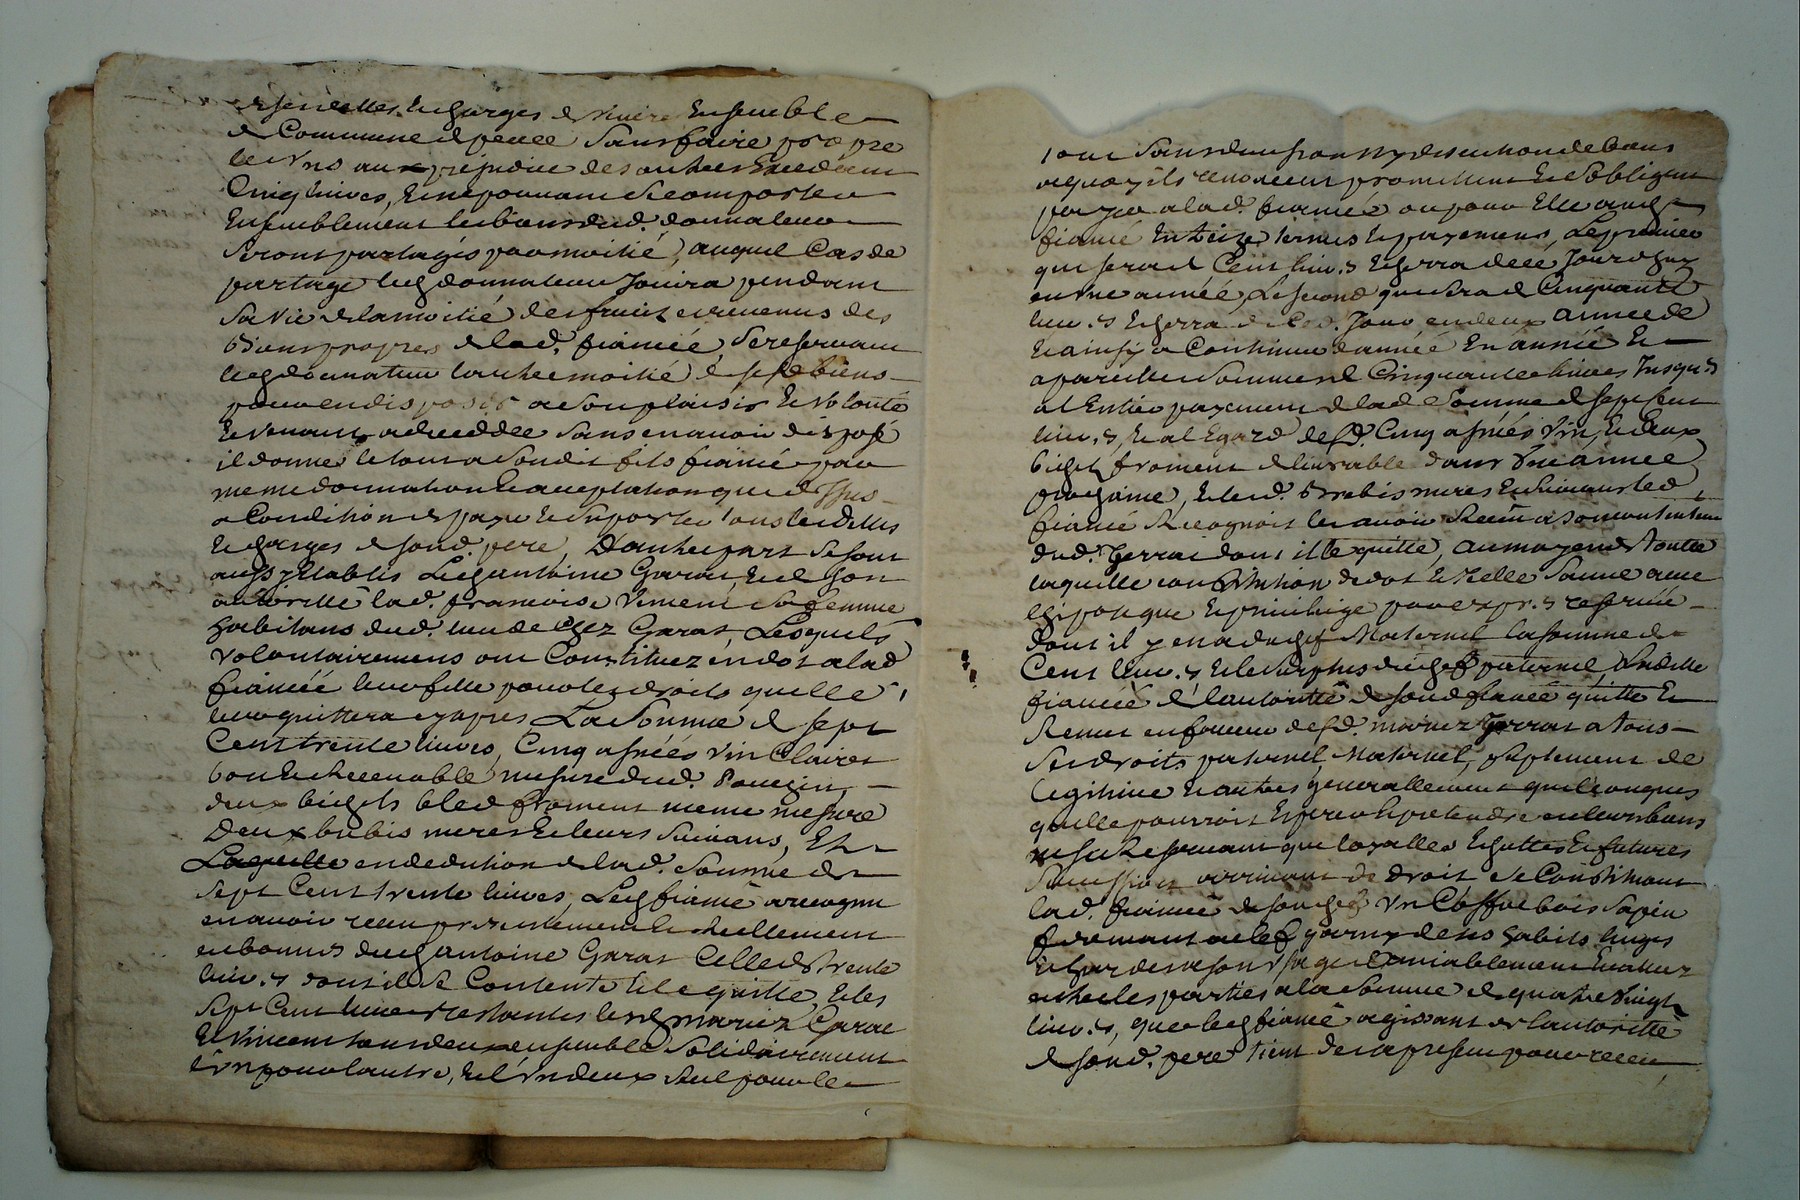 et charges de vivre Ensemble
de Commune despence Sans faire propre
les Uns au prejudice des autres Excedant
Cinq livres, Et ne pouvant Se comporter
Ensemblement les biens dud. donnateur
Seront partagés par moitié, auquel Cas de
partage led. donnateur Jouira pendant
Sa vie de la moitié des fruits et revenus des
biens propres de lad. fiancée, Se reservant
led. donnateur l'autre moitié de Ses biens
pour en disposer a Son plaisir Et volonté
Et venant a decedder Sans en avoir disposé
il donne le tout a Son dit fils fiancé par
meme donnation Et acceptation que dessus
a Condition de payer Et Suporter tous les dettes
Et charges de Sond. pere, D'autre part Se Sont
aussy Etablis Led. antoine Garat, Et de Son
autoritté lad. francoise Vincent Sa femme
habitans dud. lieu de chez Garat, Lesquels
Volontairement ont Constituez en dot a lad.
fiancée leur fille pour les droits quelle
leur quittera cy apres La Somme de Sept
Cent trente livres, Cinq asnées Vin Clairet
bon Et recevable mesure dud. Pouzin,
deux bichets bled froment meme mesure
Deux brebis meres Et leurs Suivans, Et
Laquelle en deduction de lad. Somme de
Sept Cent trente livres, Led. fiancé a recognu
en avoir receu presentement Et reellement
et bonnes dud. antoine Garat Celle de trente
liv.s dont il Se Contente Et le quitte, Et les
Sept Cent livres restantes lesd. mariez Garat
Et Vincent tous deux ensemble Solidairement
l'un pour l'autre, Et l'Un deux Seul pour le
tout Sans division ny discution de biens
a quoy ils renoncent promettent Et S'obligent
payer a lad. fiancée ou pour Elle aud.
fiancé En treize termes Et payemens, Le premier
qui Sera de Cent liv.s Echerra de ce Jourdhuy
en une année, Le Second qui Sera de Cinquante
liv.s Echerra de Ce d. Jour en deux Année de
Et ainsy a Continuer d'année En année Et
a pareille Somme de Cinquante livres Jusques
a l'Entier payement de lad. Somme de Sept Cent
liv.s, Et a l'Egard desd. Cinq asnées Vin, Et deux
bichets froment delivrable dans Une année
prochaine, Et lesd. brebis meres Et Suivans led.
fiancé Recognoit les avoir Receu a Son contentement
dud. Garrat dont il le quitte, au moyen de toute
laquelle constitution de dot Et celle Sauve avec
hipoteque Et privilege pour expr.s reservée
dont il y en a du chef Maternel la Somme de
Cent liv.s Et le Surplus du chef paternel, Ladite
fiancée de l'autoritté de Sond. fiancé quitte Et
Remet en faveur desd. mariez Garrat a tous
Ses droits paternel, Maternel, Suplement de
Legitime Et autres generallement quelconques
quelle pourroit Esperer Et pretendre en leurs biens
ne Se Reservant que loyalles Echuttes Et futures
Succession arrivant de droit Se Constituant
lad. fiancée de Son chef Un Coffre bois Sapin
fermant a clef garny de Ses habits linges
Et hardes a Son Usage Amiablement Evaluez
entre les parties a la Somme de quatre Vingt
liv.s, que led. fiancé agissant de l'autoritté
de Sond. pere tient des apresent pour receu